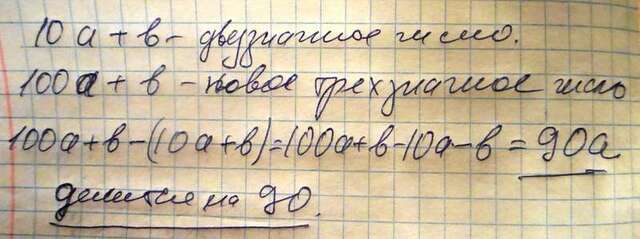 10a + в - двузначное число.
100a + в - новое трехзначное число
100a+в-(10a+в)=100a+в-10a-в = 90a
делится на 90.